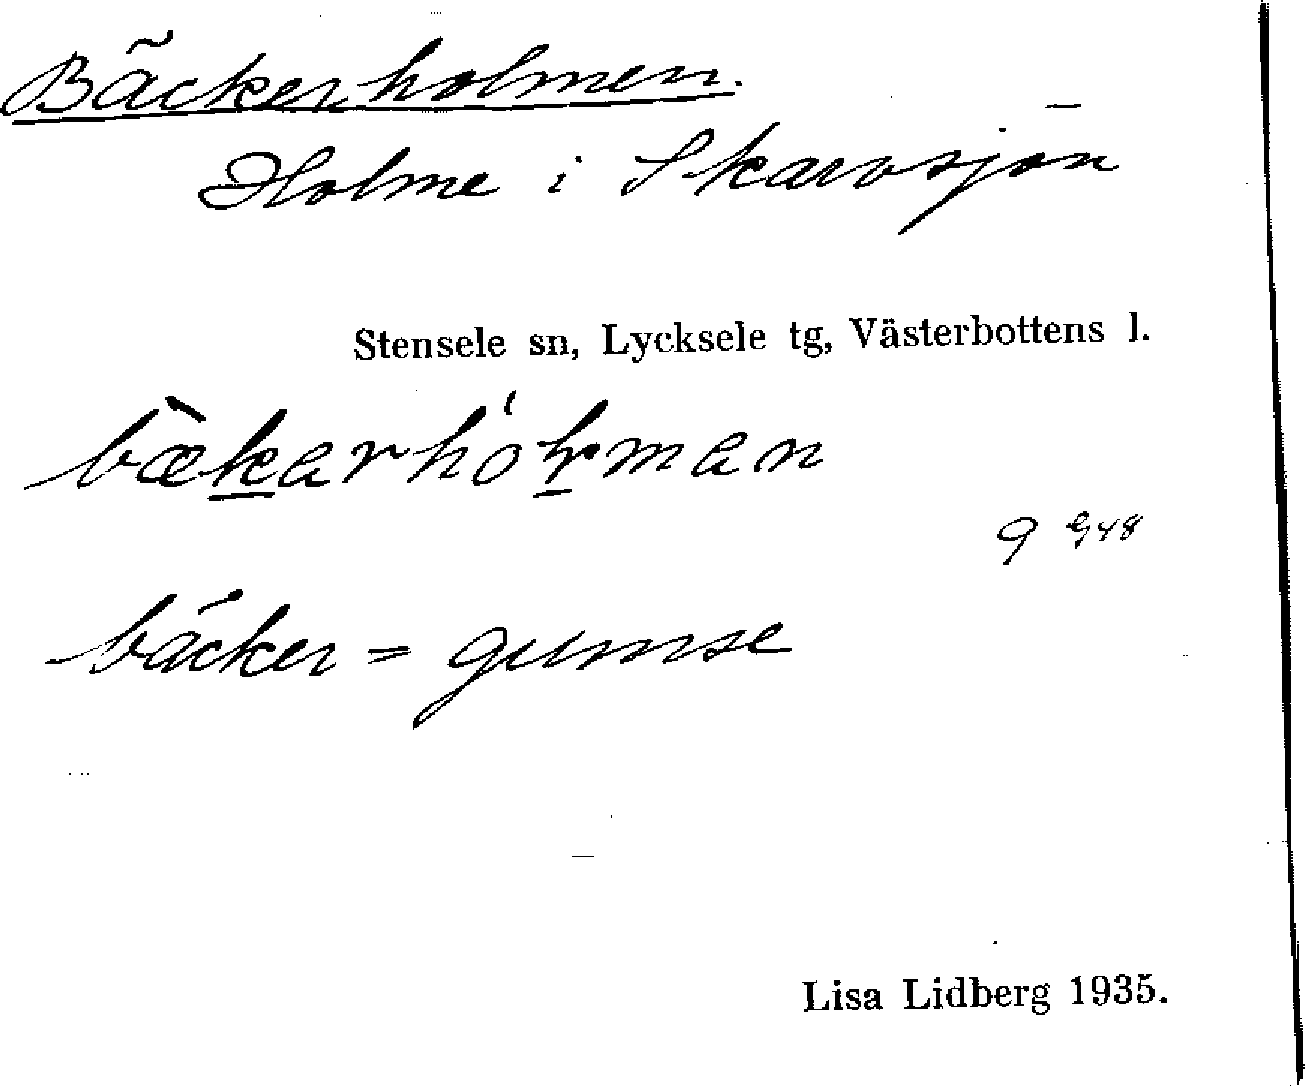 Bäckerholmen.
Holme i Skarvsjön
Stensele sn, Lycksele tg, Västerbottens l.
bäcker = gumse
Lisa Lidberg 1935.